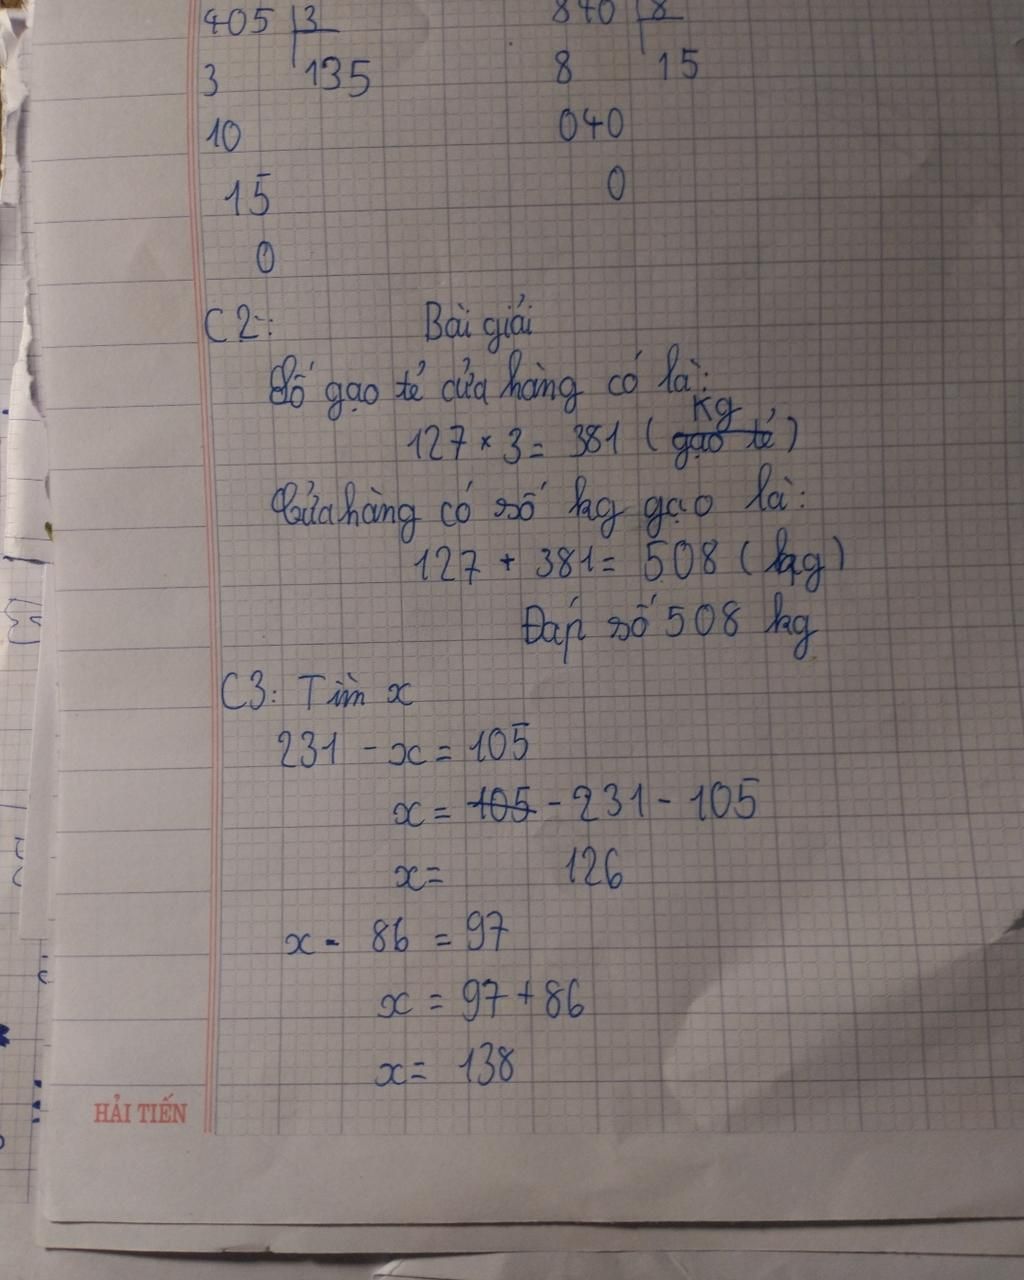 405 3
3 135
10
15
0
840 8
8 15
040
0
C2: Bài giải
Số gạo tẻ cửa hàng có là:
kg
127 × 3 = 381 (gạo tẻ)
Cửa hàng có số kg gạo là:
127 + 381 = 508 (kg)
Đáp số 508 kg
C3: Tìm x
231 - x = 105
x = 105 - 231 - 105
x = 126
x - 86 = 97
x = 97 + 86
x = 138
HẢI TIẾN